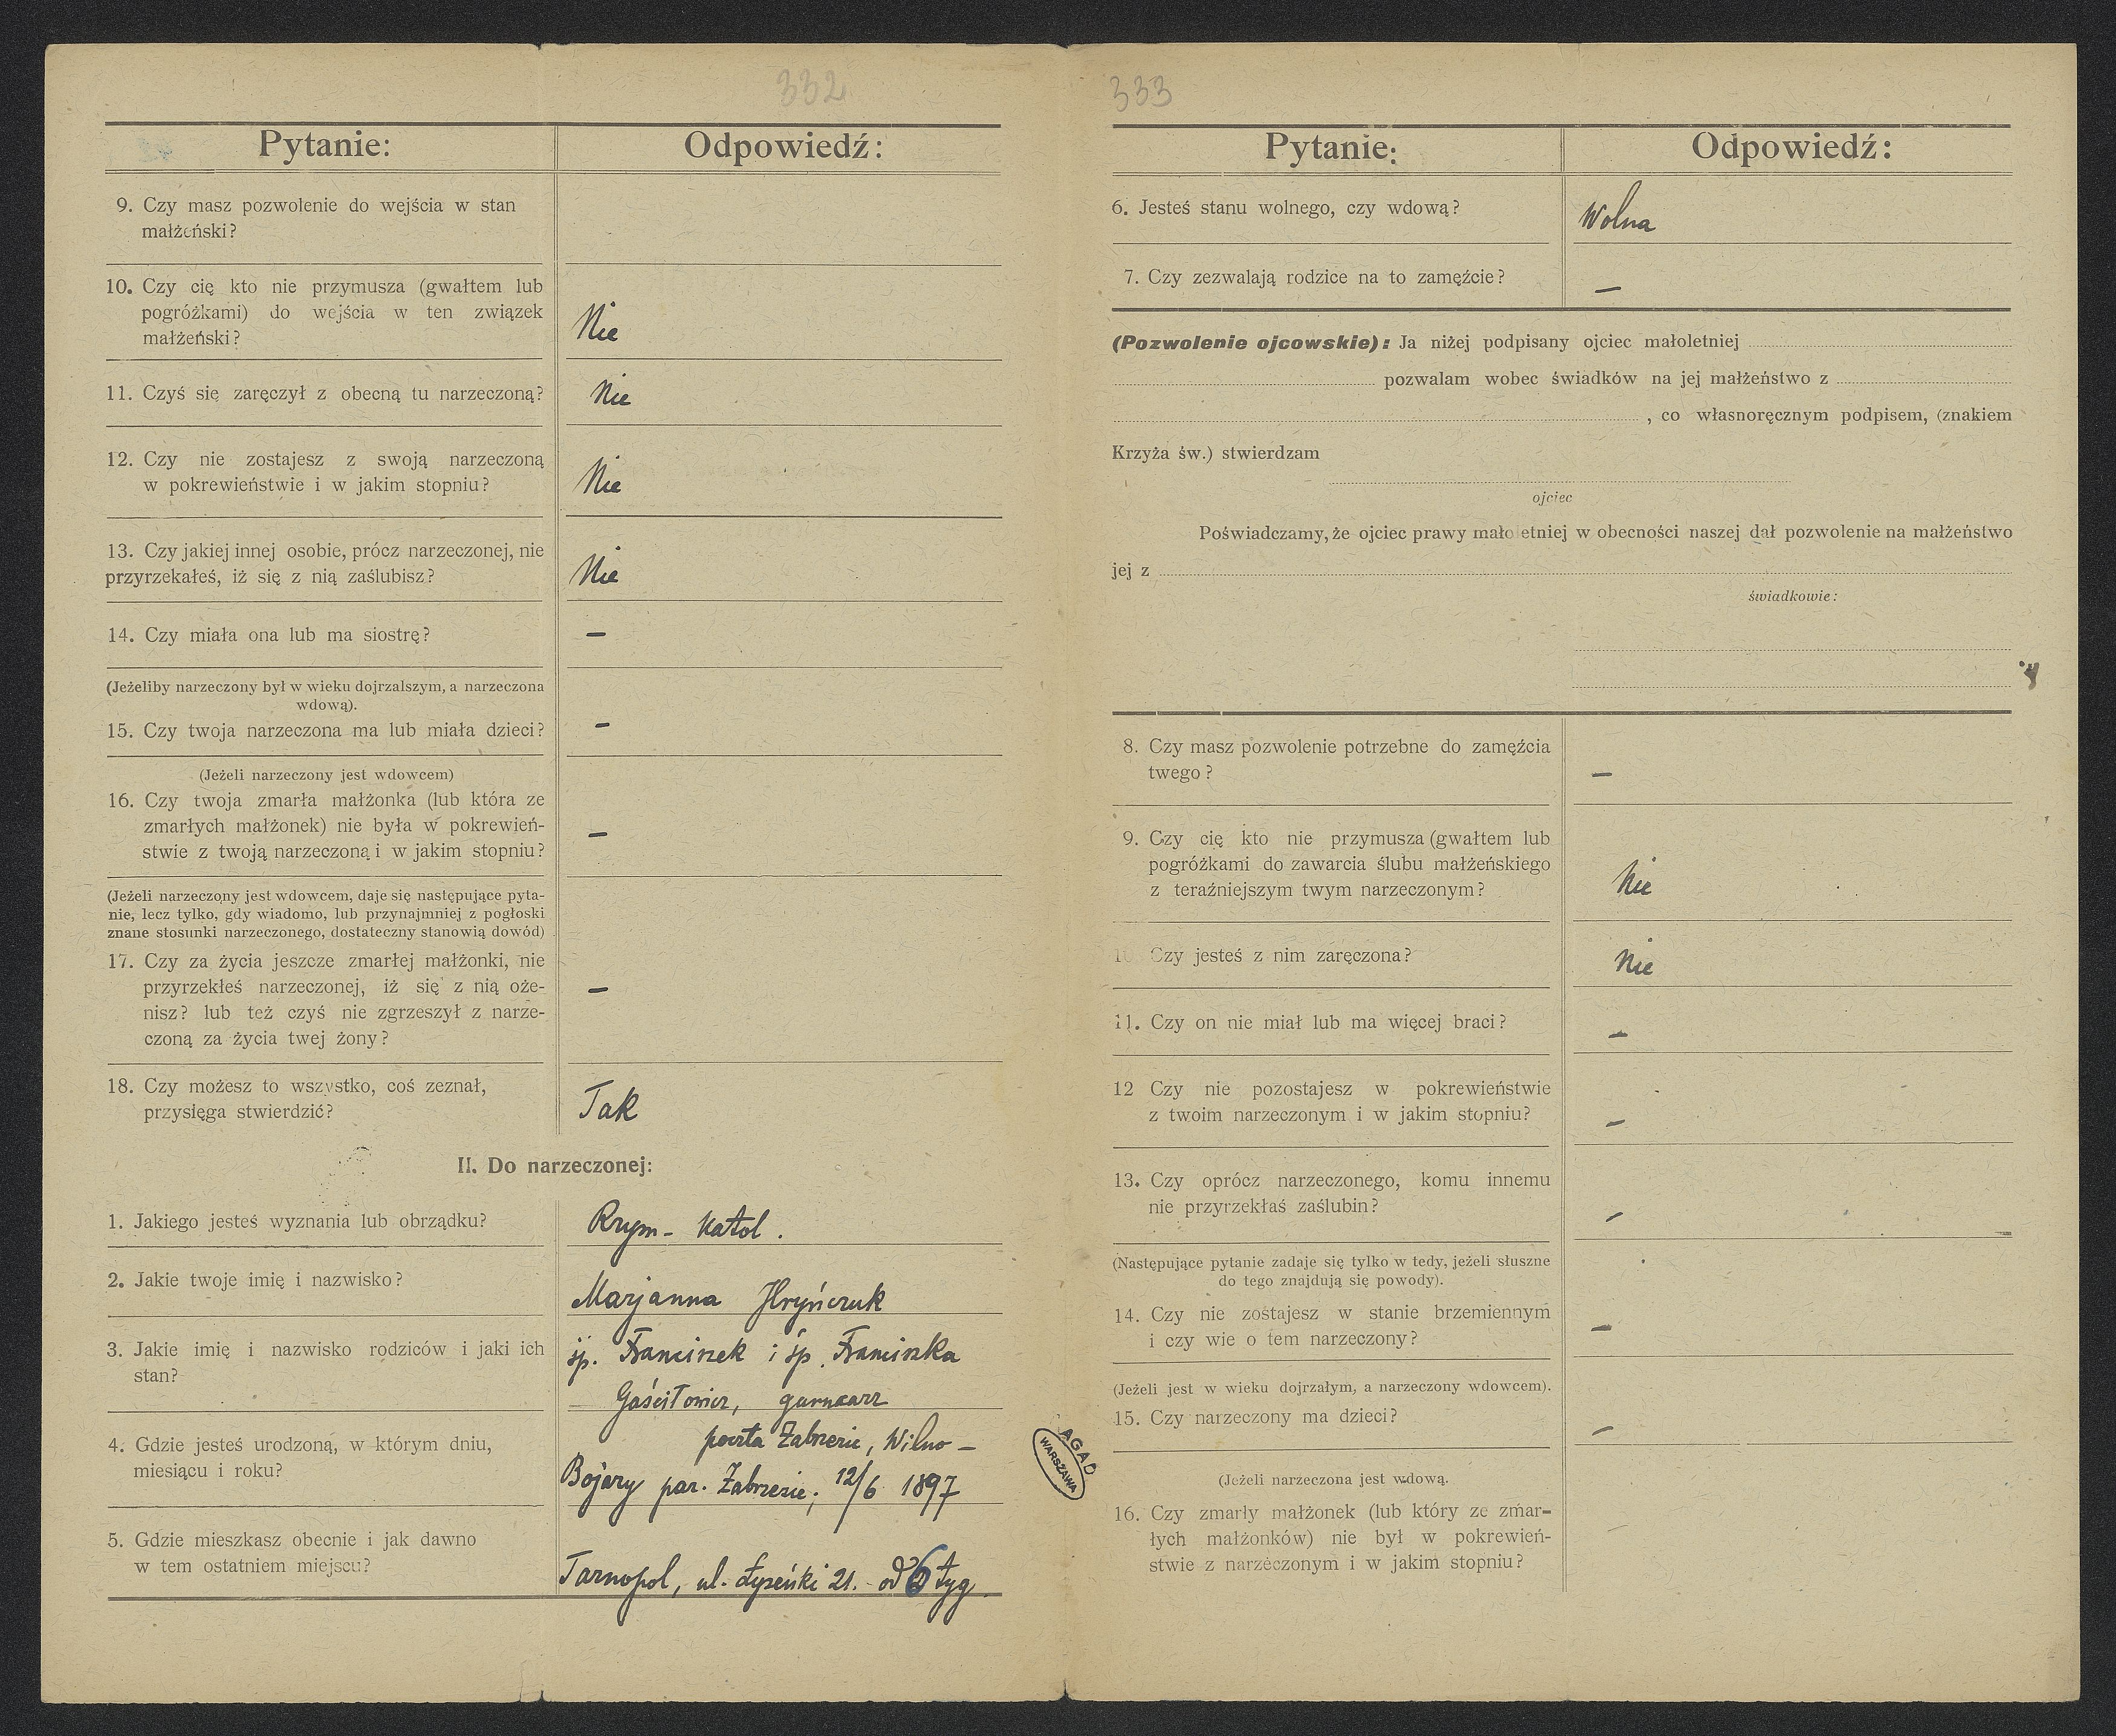 332
Pytanie:
Odpowiedź:
9. Czy masz pozwolenie do wejścia w stan
małżeński?
10. Czy cię kto nie przymusza (gwałtem lub
pogróżkami) do wejścia w ten związek
małżeński?
Nie
11. Czyś się zaręczył z obecną tu narzeczoną?
Nie
12. Czy nie zostajesz z swoją narzeczoną
w pokrewieństwie i w jakim stopniu?
Nie
13. Czy jakiej innej osobie, prócz narzeczonej, nie
przyrzekałeś, iż się z nią zaślubisz?
Nie
14. Czy miała ona lub ma siostrę?
—
(Jeżeliby narzeczony był w wieku dojrzalszym, a narzeczona
wdową).
15. Czy twoja narzeczona ma lub miała dzieci?
—
(Jeżeli narzeczony jest wdowcem)
16. Czy twoja zmarła małżonka (lub która ze
zmarłych małżonek) nie była w pokrewień-
stwie z twoją narzeczoną i w jakim stopniu?
—
(Jeżeli narzeczony jest wdowcem, daje się następujące pyta-
nie, lecz tylko, gdy wiadomo, lub przynajmniej z pogłoski
znane stosunki narzeczonego, dostateczny stanowią dowód)
17. Czy za życia jeszcze zmarłej małżonki, nie
przyrzekłeś narzeczonej, iż się z nią oże-
nisz? lub też czyś nie zgrzeszył z narze-
czoną za życia twej żony?
—
18. Czy możesz to wszystko, coś zeznał,
przysięga stwierdzić?
Tak
II. Do narzeczonej:
1. Jakiego jesteś wyznania lub obrządku?
Rzym- katol.
2. Jakie twoje imię i nazwisko?
Marjanna Hryńczuk
3. Jakie imię i nazwisko rodziców i jaki ich
stan?
śp. Franciszek i śp. Franciszka
Gościłowicz, garncarz
4. Gdzie jesteś urodzoną, w którym dniu,
miesiącu i roku?
poczta Zabrzezie, Wilno —
Bojary par. Zabrzezie; 12/6 1897
5. Gdzie mieszkasz obecnie i jak dawno
w tem ostatniem miejscu?
Tarnopol, ul. 21. - od 6 tyg.
333
Pytanie:
Odpowiedź:
6. Jesteś stanu wolnego, czy wdową?
Wolna
7. Czy zezwalają rodzice na to zamęźcie?
—
(Pozwolenie ojcowskie): Ja niżej podpisany ojciec małoletniej
pozwalam wobec świadków na jej małżeństwo z
, co własnoręcznym podpisem, (znakiem
Krzyża św.) stwierdzam
ojciec
Poświadczamy, że ojciec prawy mało etniej w obecności naszej dał pozwolenie na małżeństwo
jej z
świadkowie:
8. Czy masz pozwolenie potrzebne do zamęźcia
twego?
—
9. Czy cię kto nie przymusza (gwałtem lub
pogróżkami do zawarcia ślubu małżeńskiego
z teraźniejszym twym narzeczonym?
Nie
10 Czy jesteś z nim zaręczona?
Nie
11. Czy on nie miał lub ma więcej braci?
—
12 Czy nie pozostajesz w pokrewieństwie
z twoim narzeczonym i w jakim stopniu?
—
13. Czy oprócz narzeczonego, komu innemu
nie przyrzekłaś zaślubin?
—
(Następujące pytanie zadaje się tylko w tedy, jeżeli słuszne
do tego znajdują się powody).
14. Czy nie zostajesz w stanie brzemiennym
i czy wie o tem narzeczony?
—
(Jeżeli jest w wieku dojrzałym, a narzeczony wdowcem).
15. Czy narzeczony ma dzieci?
—
(Jeżeli narzeczona jest wdową.
16. Czy zmarły małżonek (lub który ze zmar-
łych małżonków) nie był w pokrewień-
stwie z narzeczonym i w jakim stopniu?
AGAD
WARSZAWA